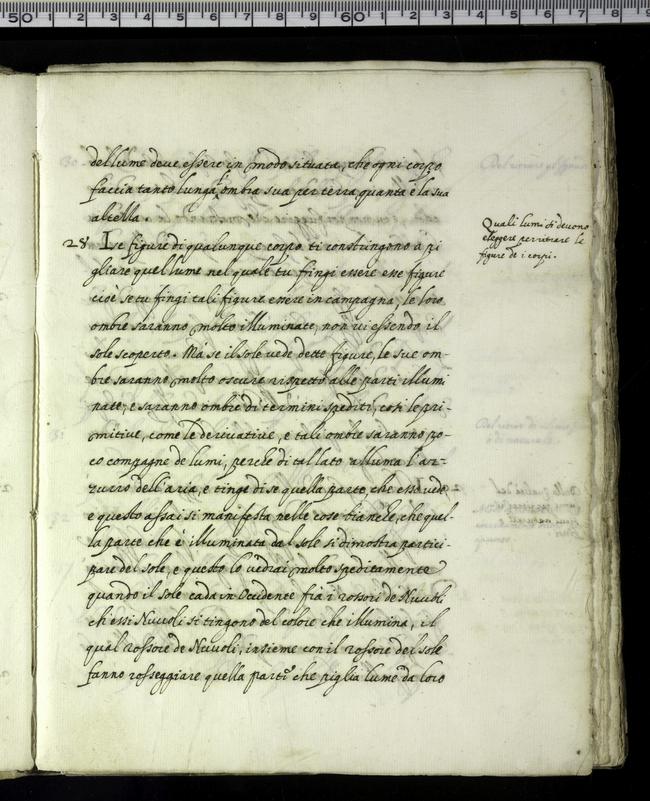 del lume deve essere in modo situata, che ogni corpo
faccia tanto lunga l'ombra sua per terra quanta è la sua
altezza.
Quali lumi si devono
eleggere per ritrare le
figure de i corpi.
28 Le figure di qualunque corpo ti constringono à pi
gliare quel lume nel quale tu fingi essere esse figure
cioè se tu fingi tali figure essere in campagna, le loro
ombre saranno molto illuminate, non vi essendo il
sole scoperto. Mà se il sole vede dette figure, le sue om-
bre saranno molto oscure rispetto alle parti illumi
nate, e saranno ombre di termini spediti, così le pri-
mitive, come le derivative, e tali ombre saranno po-
co compagne de lumi, perche di tal lato alluma l'az-
zurro dell'aria, e tinge di se quella parte, che esso vede,
e questo assai si manifesta nelle cose bianche, che quel-
la parte che è illuminata dal sole si dimostra partici-
pare del sole, e questo lo vedrai molto speditamente
quando il sole cada in Occidente fra i rossori de Nuvoli
ch'essi Nuvoli si tingono del colore che illumina, il
qual rossore de Nuvoli, insieme con il rossore del sole
fanno rosseggiare quella parte che piglia lume da loro